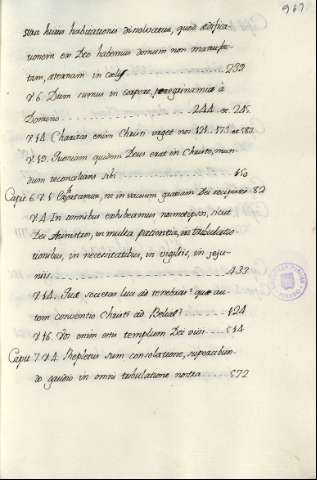 967
stra huius habitationis dissolvatur, quod ædifica
tionem ex Deo habemus domum non manufa-
ctam, æternam in cœlis . . . . . . . . . . . . . . . 233
V. 6. Dum sumus in corpore, peregrinamur à
Domino . . . . . . . . . . . . . . . . . 244. et 245.
V. 14. Charitas enim Christi urget nos. 121. 173. et
V. 19. Quoniam quidem Deus erat in Christo, mun
dum reconcilians sibi . . . . . . . . . . . . . . . 150
Capit. 6. V. 1. Exhortamur, ne in vacuum gratiam Dei recipiatis. 82
V. 4. In omnibus exhibeamus nosmetipsos, sicut
Dei Ministros, in multa patientia, in tribulatio
tionibus, in necessitatibus, in vigiliis, in jeju-
niis . . . . . . . . . . . . . . . . . . . . . . . . 433
V. 14. Quæ societas luci ad tenebras? quæ au-
tem conventio Christi ad Belial? . . . . . 124
V. 16. Vos enim estis templum Dei vivi . . . 514
Capit. 7. V. 4. Repletus sum consolatione, superabun
do gaudio in omni tribulatione nostra . . . . . 572